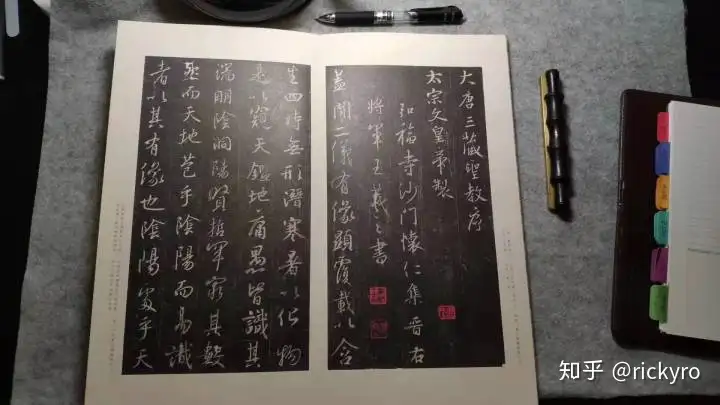 大唐三藏聖教序
太宗文皇帝製
弘福寺沙門懷仁集晉右
將軍王羲之書
蓋聞二儀有像顯覆載以含
生四時無形潛寒暑以化物
是以窺天鑑地庸愚皆識其
端明陰洞陽賢哲罕窮其數
然而天地苞乎陰陽而易識
者以其有像也陰陽處乎天
知乎 @rickyro